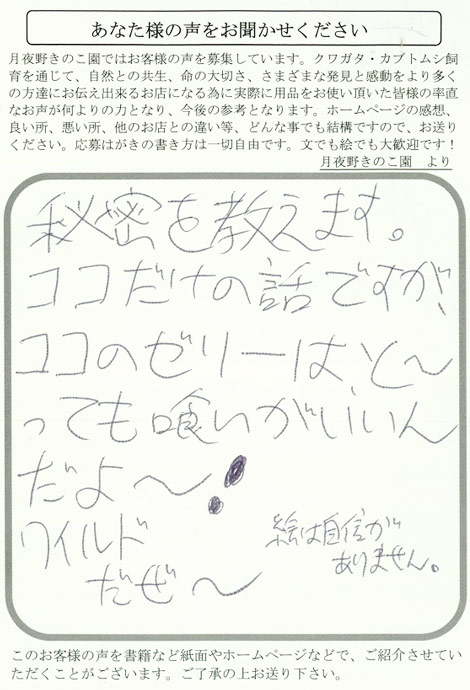 あなた様の声をお聞かせください
月夜野きのこ園ではお客様の声を募集しています。クワガタ・カブトムシ飼
育を通じて、自然との共生、命の大切さ、さまざまな発見と感動をより多く
の方達にお伝え出来るお店になる為に実際に用品をお使い頂いた皆様の率直
なお声が何よりの力となり、今後の参考となります。ホームページの感想、
良い所、悪い所、他のお店との違い等、どんな事でも結構ですので、お送り
ください。応募はがきの書き方は一切自由です。文でも絵でも大歓迎です！
月夜野きのこ園　より
秘密を教えます。
ココだけの話ですが、
ココのゼリーは、と～
っても喰いがいいん
だよ～!
ワイルド
だぜ～
絵は自信が
ありません。
このお客様の声を書籍など紙面やホームページなどで、ご紹介させてい
ただくことがございます。ご了承の上お送り下さい。